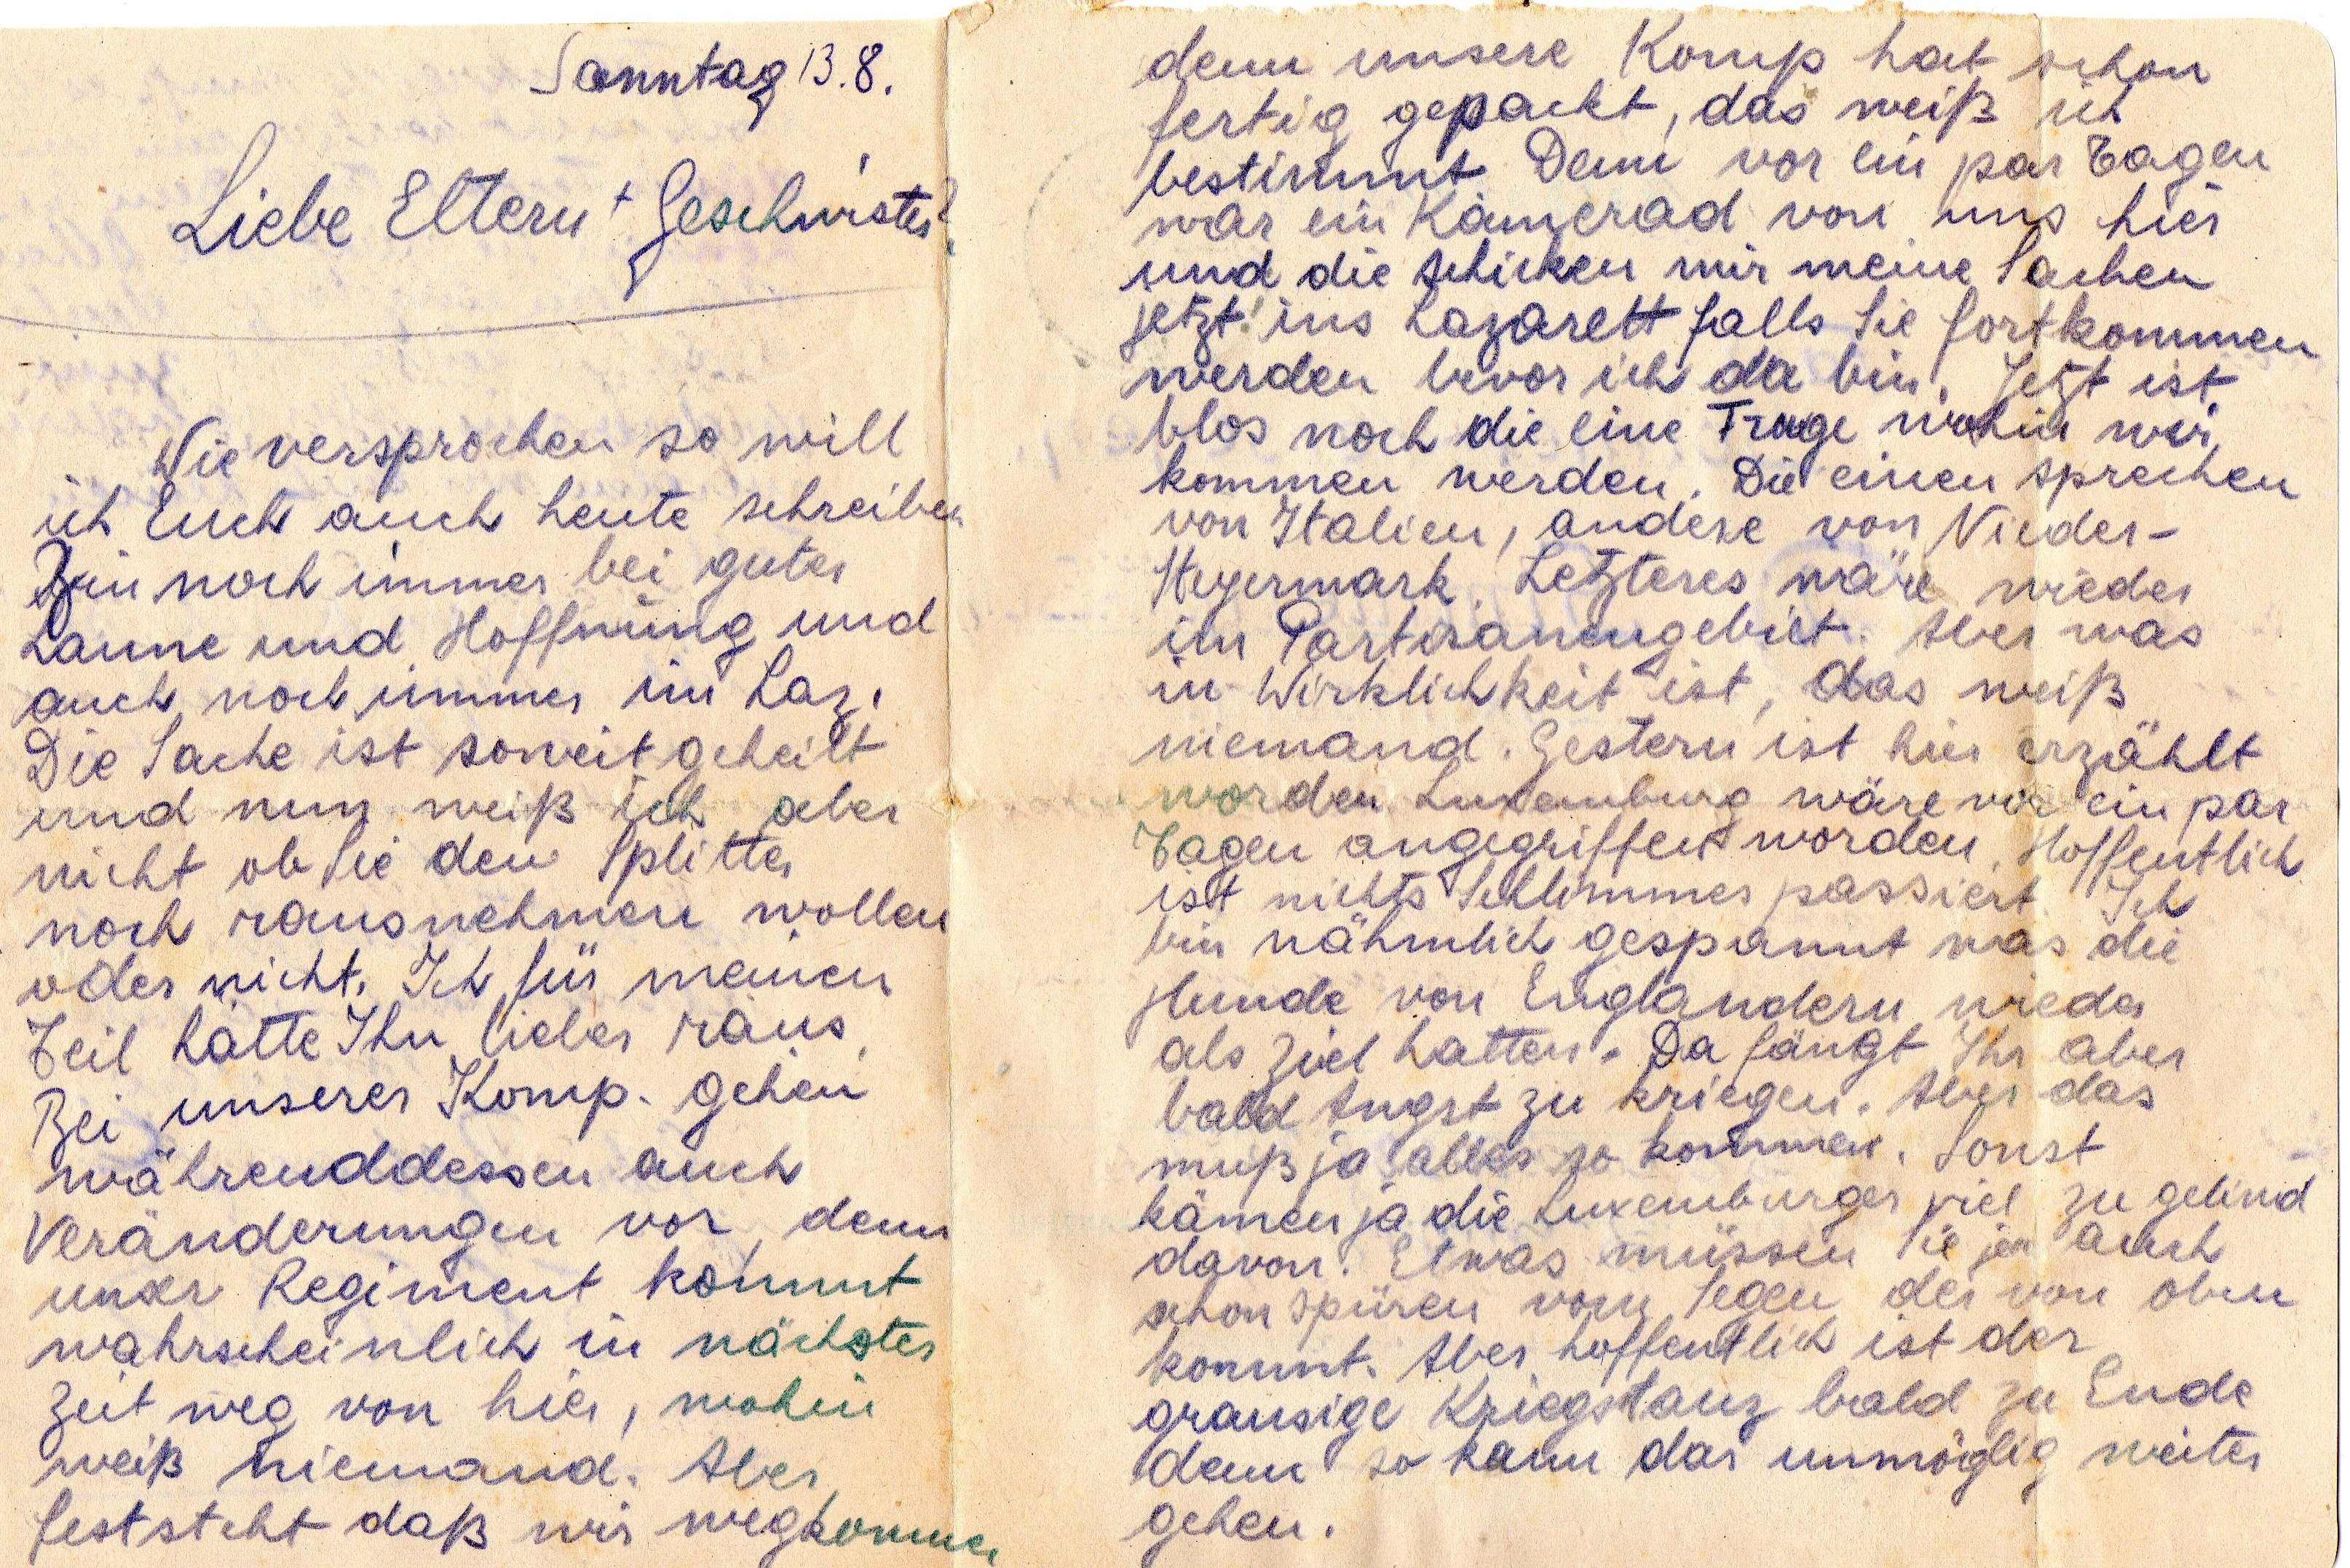 Sonntag 13.8.
Liebe Eltern + Geschwister!
Wie versprochen so will
ich Euch auch heute schreiben
Bin noch immer bei guter
Laune und Hoffnung und
auch noch immer im Laz.
Die Sache ist soweit geheilt
und nun weiß ich aber
nicht ob Sie den Splitter
noch rausnehmen wollen
oder nicht. Ich für meinen
Teil hätte Ihn lieber raus.
Bei unserer Komp. gehen
währenddessen auch
Veränderungen vor, denn
unser Regiment kommt
wahrscheinlich in nächster
Zeit weg von hier, wohin
weiß niemand. Aber
feststeht daß wir wegkommen
denn unsere Komp hat schon
fertig gepackt, das weiß ich
bestimmt. Denn vor ein par Tagen
war ein Kamerad von uns hier
und die schicken mir meine Sachen
jetzt ins Lazarett falls Sie fortkommen
werden bevor ich da bin. Jetzt ist
blos noch die eine Frage wohin wir
kommen werden. Die einen sprechen
von Italien, andere von Nieder-
steyermark. Letzteres wäre wieder
im Partisanengebiet. Aber was
in Wirklichkeit ist, das weiß
niemand. Gestern ist hier erzählt
worden Luxemburg wäre vor ein par
Tagen angegriffen worden. Hoffentlich
ist nichts Schlimmes passiert. Ich
bin nähmlich gespannt was die
Hunde von Engländern wieder
als Ziel hatten. Da fängt Ihr aber
bald Angst zu kriegen. Aber das
muß ja alles so kommen. Sonst
kämen ja die Luxemburger viel zu gelind
davon. Etwas müssen Sie ja auch
schon spüren vom Segen der von oben
kommt. Aber hoffentlich ist der
grausige Kriegstanz bald zu Ende
denn so kann das unmöglig weiter
gehen.